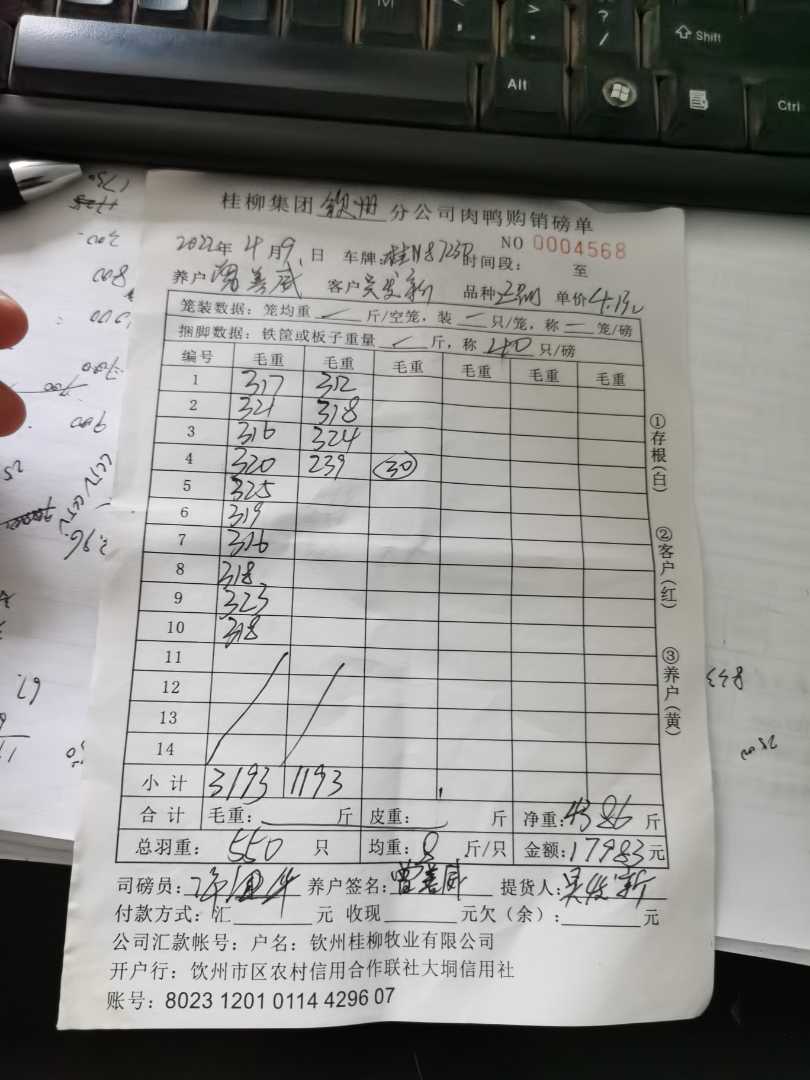 桂柳集团 钦州 分公司肉鸭购销磅单
NO 0004568
2022年 4月 9日 车牌: 桂N8725D 时间段: 至
养户 曾善威 客户 吴发新 品种 单价 4.1元
笼装数据: 笼均重 斤/空笼, 装 只/笼, 称 笼/磅
捆脚数据: 铁筐或板子重量 斤, 称 40 只/磅
编号 毛重 毛重 毛重 毛重 毛重 毛重
1 317 312
2 321 318
3 316 324
4 320 239 30
5 325
6 319
7 316
8 318
9 323
10 318
11
12
13
14
小计 3193 1193
合计 毛重: 斤 皮重: 斤 净重: 4386 斤
总羽重: 550 只 均重: 8 斤/只 金额: 17983 元
司磅员: 养户签名: 曾善威 提货人: 吴发新
付款方式: 汇 元 收现 元欠(余): 元
公司汇款帐号: 户名: 钦州桂柳牧业有限公司
开户行: 钦州市区农村信用合作联社大垌信用社
账号: 8023 1201 0114 4296 07
①存根(白)
②客户(红)
③养户(黄)
Shift
Alt
Ctrl